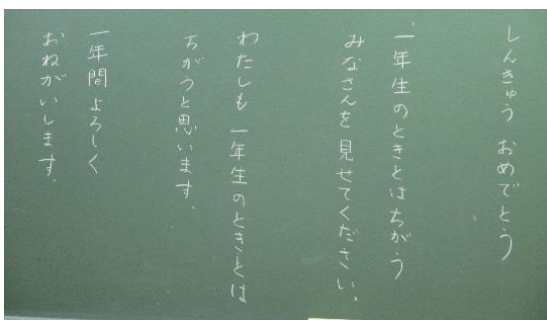 しんきゅう おめでとう
一年生のときとはちがう
みなさんを見せてください。
わたしも 一年生のときとは
ちがうと思います。
一年間よろしく
おねがいします。